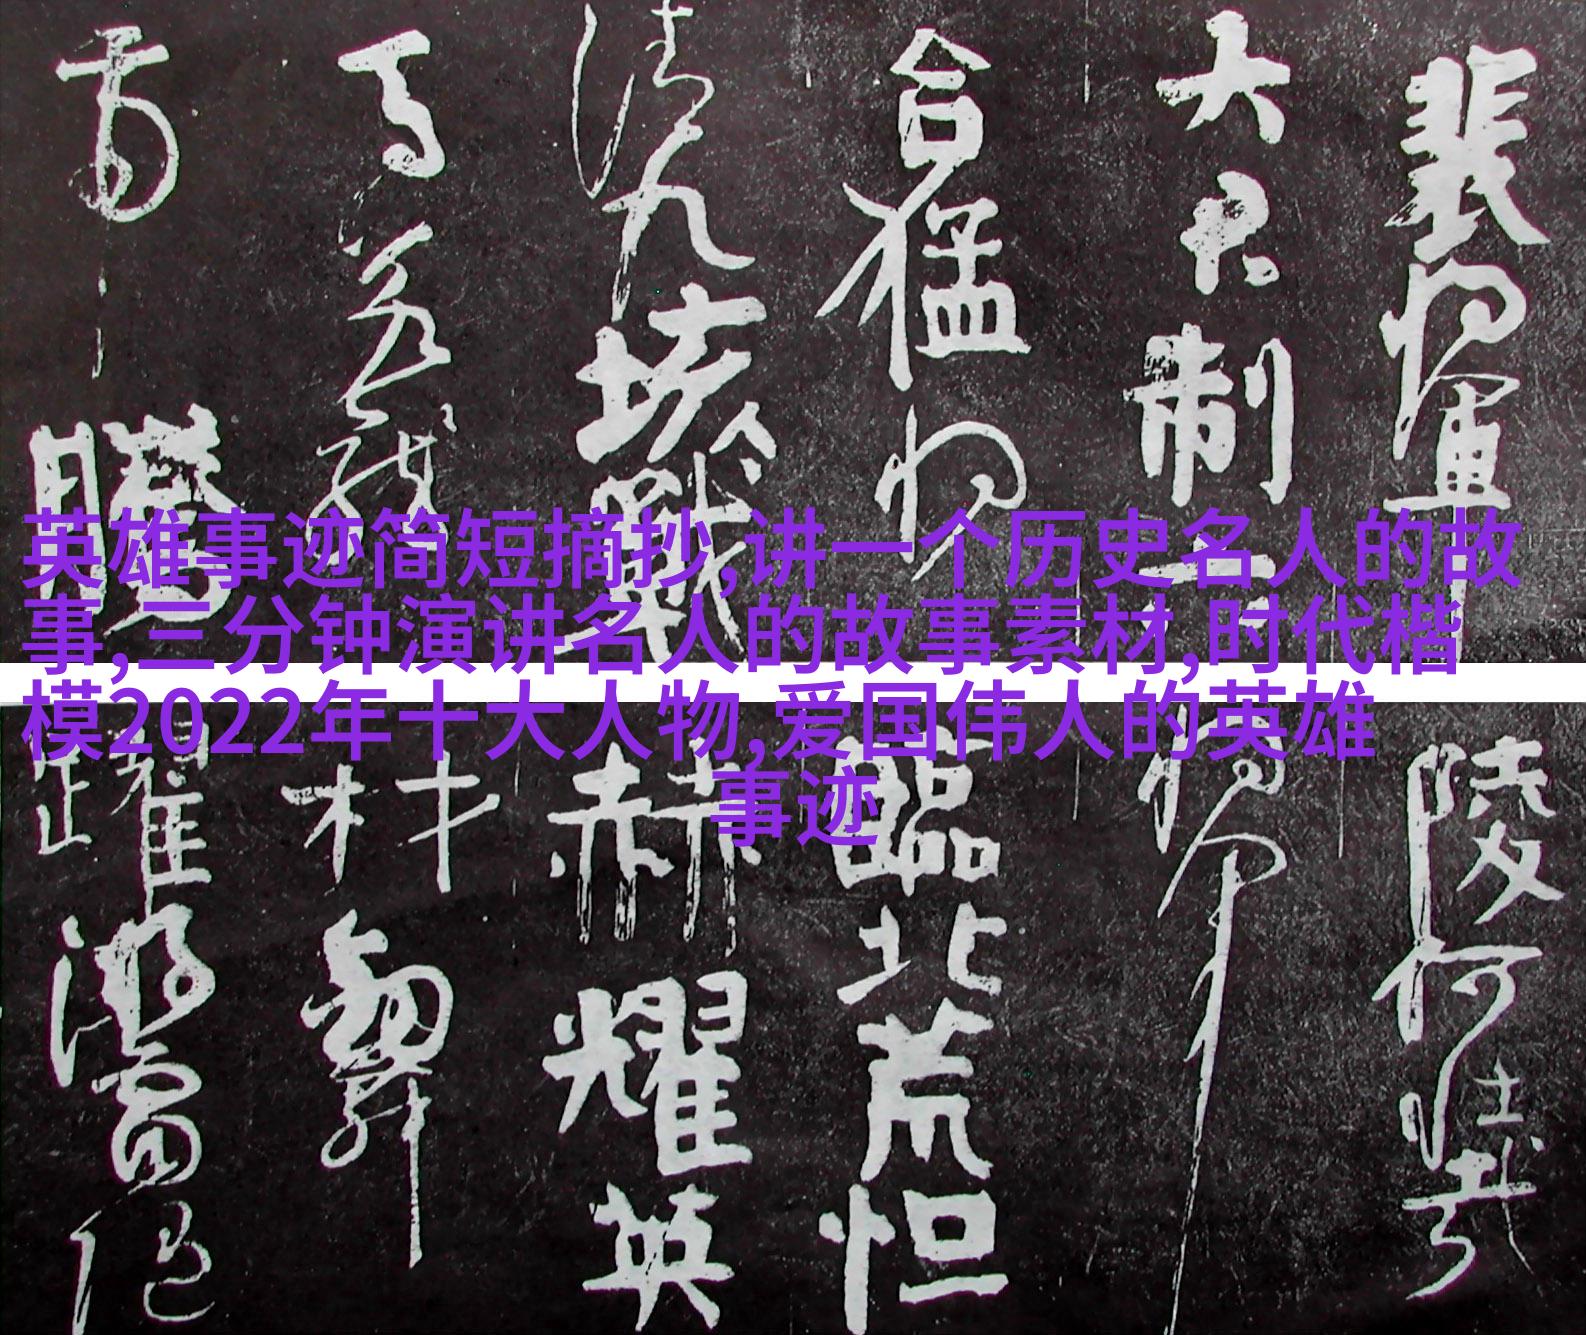 英雄事迹简短摘抄,讲一个历史名人的故
事,三分钟演讲名人的故事素材,时代楷
模2022年十大人物,爱国伟人的英雄
事迹
裴将軍
大君制六
合猛将
清九垓戰
馬若龍
虎騰
陵何壯哉
将軍
臨北荒恒
赫耀英
材劍舞
躍游雷随